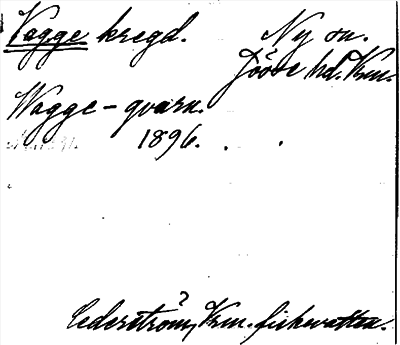 Vagge kregd. Ny sn.
Jösse hd. Vrm.
Wagge-qvarn.
1896.
Cederström, Vrm. fiskevatten.